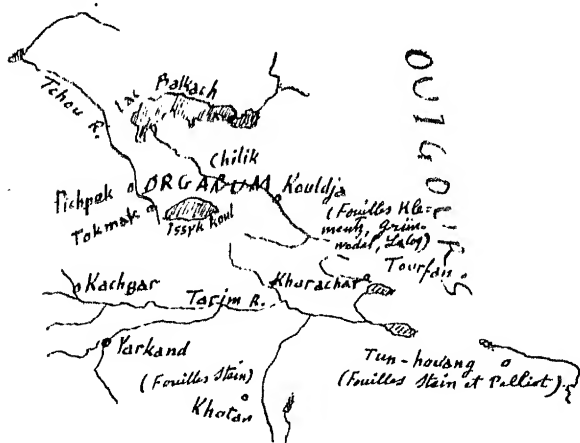 OUIGOURS
Tchou R.
Lac Balkach
Chilik
Pichpek
ORGANUM
Kouldja
Tokmak
Issyk koul
(Fouilles Kle=
mentz, Grün=
wedel, Lecoq)
Tourfan
Kharachar
Kachgar
Tarim R.
Yarkand
(Fouilles Stein)
Khotan
Tun-houang
(Fouilles Stein et Pelliot).